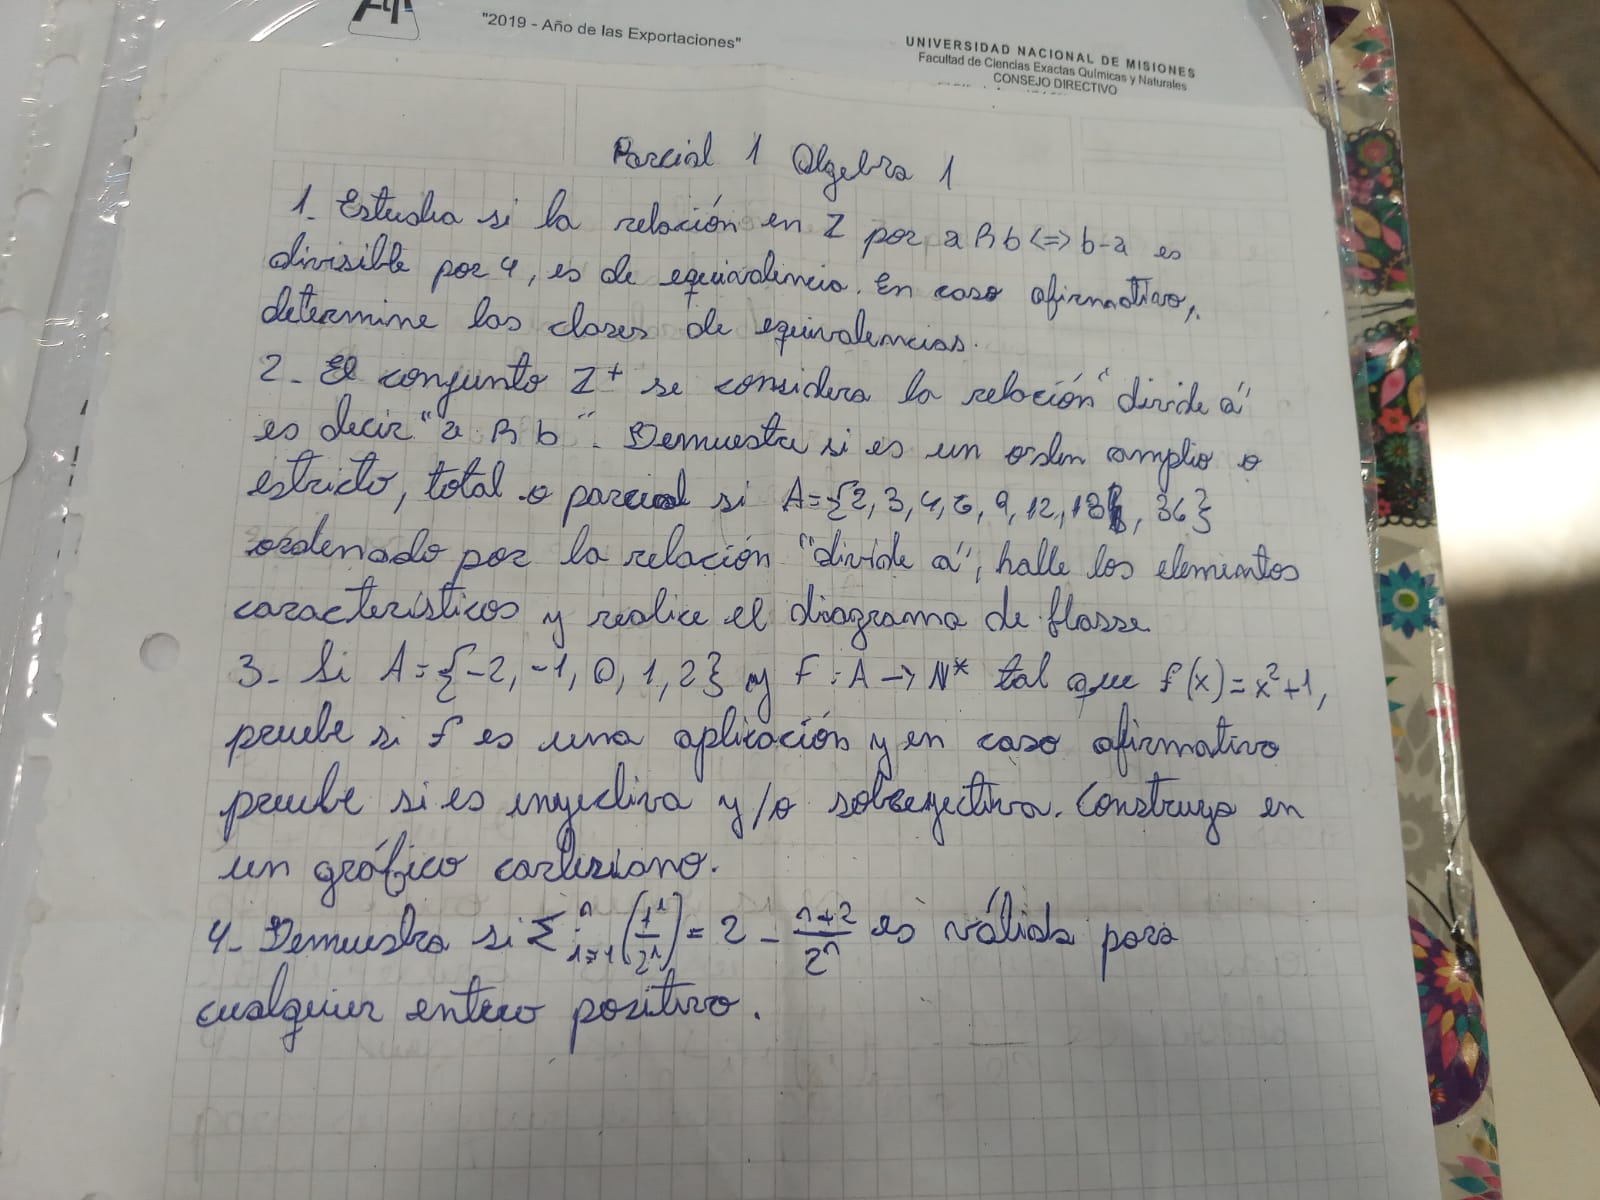 "2019 - Año de las Exportaciones"
UNIVERSIDAD NACIONAL DE MISIONES
Facultad de Ciencias Exactas Químicas y Naturales
CONSEJO DIRECTIVO
Parcial 1 Algebra 1
1- Estudia si la relación en Z por a R b <=> b-a es
divisible por 4, es de equivalencia. En caso afirmativo,
determine las clases de equivalencias.
2- El conjunto Z⁺ se considera la relación "divide a"
es decir "a R b". Demuestre si es un orden amplio o
estricto, total o parcial si A={2, 3, 4, 6, 9, 12, 18, 36}
ordenado por la relación "divide a", halle los elementos
característicos y realice el diagrama de Hasse.
3- Si A={-2, -1, 0, 1, 2} y F: A → N* tal que f(x)=x²+1,
pruebe si f es una aplicación y en caso afirmativo
pruebe si es inyectiva y/o sobreyectiva. Construya en
un gráfico cartesiano.
4- Demuestra si Σⁿᵢ₌₁ (iⁱ/2ⁱ) = 2 - (n+2)/2ⁿ es válida para
cualquier entero positivo.